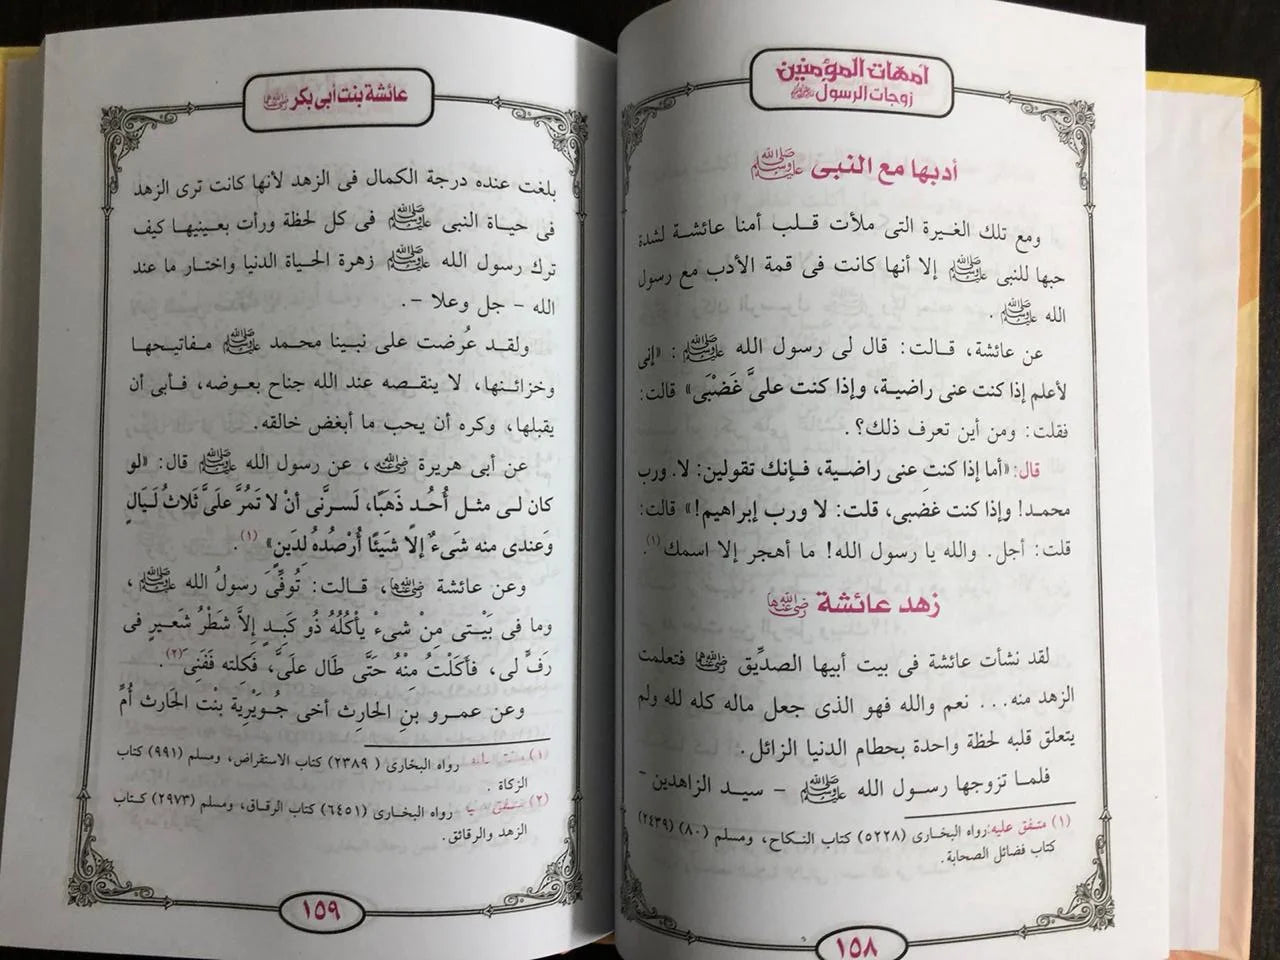 أمهات المؤمنين
زوجات الرسول ﷺ
أدبها مع النبى ﷺ
ومع تلك الغيرة التى ملأت قلب أمنا عائشة لشدة
حبها للنبى ﷺ إلا أنها كانت فى قمة الأدب مع رسول
الله ﷺ .
عن عائشة، قالت: قال لى رسول الله ﷺ : «إنى
لأعلم إذا كنت عنى راضية، وإذا كنت علىَّ غَضْبَى» قالت:
فقلت: ومن أين تعرف ذلك؟.
قال: «أما إذا كنت عنى راضية، فإنك تقولين: لا. ورب
محمد! وإذا كنت غضَبى، قلت: لا ورب إبراهيم!» قالت:
قلت: أجل. والله يا رسول الله! ما أهجر إلا اسمك(١).
زهد عائشة رضي الله عنها
لقد نشأت عائشة فى بيت أبيها الصدِّيق رضي الله عنهما فتعلمت
الزهد منه... نعم والله فهو الذى جعل ماله كله لله ولم
يتعلق قلبه لحظة واحدة بحطام الدنيا الزائل.
فلما تزوجها رسول الله ﷺ - سيد الزاهدين -
(١) متفق عليه: رواه البخارى (٥٢٢٨) كتاب النكاح، ومسلم (٨٠) (٢٤٣٩)
كتاب فضائل الصحابة.
١٥٨
عائشة بنت أبى بكر رضي الله عنها
بلغت عنده درجة الكمال فى الزهد لأنها كانت ترى الزهد
فى حياة النبى ﷺ فى كل لحظة ورأت بعينيها كيف
ترك رسول الله ﷺ زهرة الحياة الدنيا واختار ما عند
الله - جل وعلا -.
ولقد عُرضت على نبينا محمد ﷺ مفاتيحها
وخزائنها، لا ينقصه عند الله جناح بعوضه، فأبى أن
يقبلها، وكره أن يحب ما أبغض خالقه.
عن أبى هريرة رضي الله عنه، عن رسول الله ﷺ قال: «لو
كان لى مثل أُحُد ذَهَبًا، لَسرَّنى أنْ لا تَمُرَّ علَىَّ ثَلاثُ لَيَالٍ
وَعندى منه شَىءٌ إلاَّ شَيئًا أُرْصُدُه لِدَينٍ» (١) .
وعن عائشة رضي الله عنها، قالت: تُوفِّىَ رسولُ الله ﷺ ،
وما فى بَيْتى مِنْ شىءٍ يأكُلُهُ ذُو كَبِدٍ إلاَّ شَطْرُ شَعيرٍ فى
رَفٍّ لى، فأكَلْتُ مِنْهُ حَتَّى طَال علَىَّ، فَكِلته فَفَنِىَ(٢) .
وعن عمرو بنِ الحَارِث أخى جُوَيْرِية بنْت الحَارث أُمِّ
(١) متفق عليه رواه البخارى ( ٢٣٨٩) كتاب الاستقراض، ومسلم (٩٩١) كتاب
الزكاة .
(٢) رواه البخارى (٦٤٥١) كتاب الرقاق، ومسلم (٢٩٧٣) كتاب
الزهد والرقائق.
١٥٩